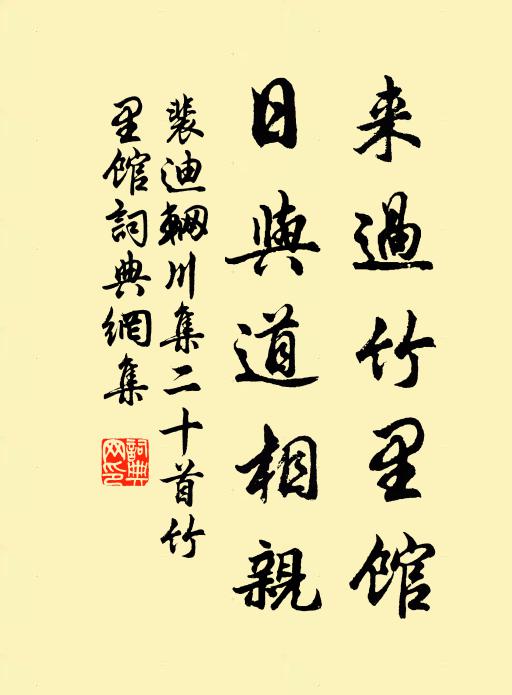 来過竹里館
日與道相親
裴迪輞川集二十首竹
里館詞典網集
詞典
网印